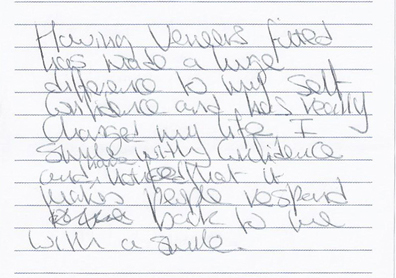 Having Veneers fitted
has made a huge
difference to my self
confidence and has really
changed my life. I
smile with confidence
and have noticed that it
makes people respond
back to me
with a smile.